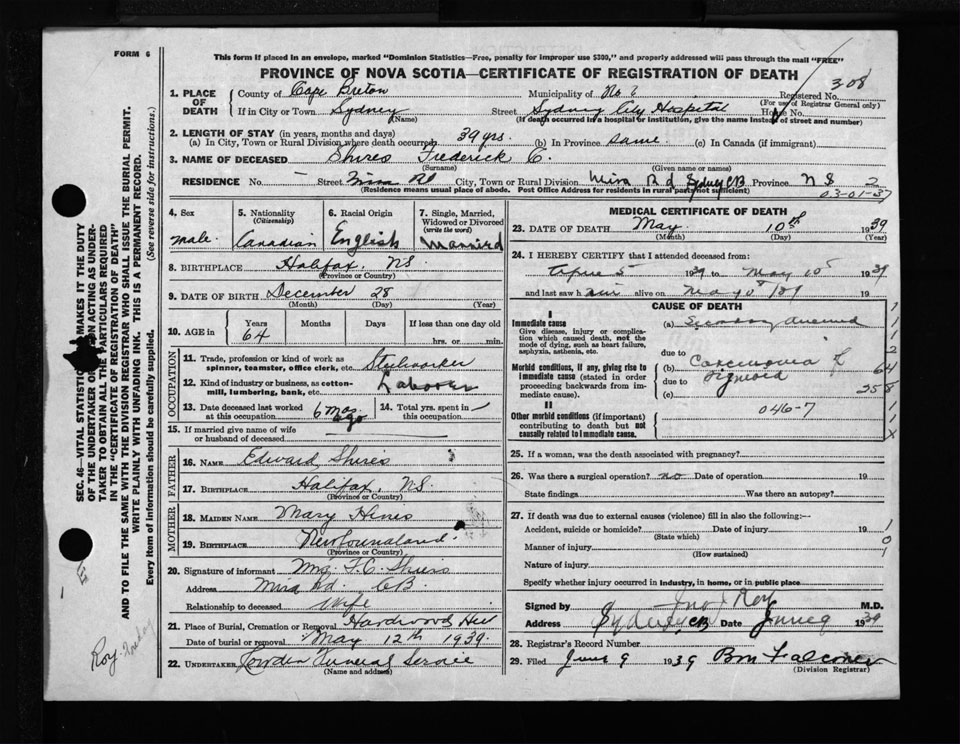 FORM 6
This form if placed in an envelope, marked "Dominion Statistics—Free, penalty for improper use $300," and properly addressed will pass through the mail "FREE"
PROVINCE OF NOVA SCOTIA—CERTIFICATE OF REGISTRATION OF DEATH
308
1. PLACE OF DEATH County of Cape Breton Municipality of No Registered No.
(For use of Registrar General only)
If in City or Town Sydney Street Sydney City Hospital House No.
(Name) (If death occurred in a hospital or institution, give the name instead of street and number)
2. LENGTH OF STAY (in years, months and days)
(a) In City, Town or Rural Division where death occurred 39 yrs. (b) In Province same. (c) In Canada (if immigrant)
3. NAME OF DECEASED Shires Frederick C.
(Surname) (Given name or names)
RESIDENCE No. — Street Mira Rd City, Town or Rural Division Mira Rd Sydney CB Province N S 2
(Residence means usual place of abode. Post Office Address for residents in rural parts not sufficient)
03-01-37
4. Sex
male.
5. Nationality
(Citizenship)
Canadian
6. Racial Origin
English
7. Single, Married, Widowed or Divorced
(write the word)
Married
8. BIRTHPLACE Halifax, NS.
(Province or Country)
9. DATE OF BIRTH December 28
(Month) (Day) (Year)
10. AGE in Years Months Days If less than one day old
64 hrs. or min.
OCCUPATION
11. Trade, profession or kind of work as spinner, teamster, office clerk, etc. Steelworker
12. Kind of industry or business, as cotton-mill, lumbering, bank, etc. Laborer
13. Date deceased last worked at this occupation 6 mos. ago
14. Total yrs. spent in this occupation
15. If married give name of wife or husband of deceased
FATHER
16. NAME Edward Shires
17. BIRTHPLACE Halifax, NS
(Province or Country)
MOTHER
18. MAIDEN NAME Mary Hines
19. BIRTHPLACE Newfoundland.
(Province or Country)
20. Signature of informant Mrs. F. C. Shires
Address Mira Rd. CB.
Relationship to deceased Wife
21. Place of Burial, Cremation or Removal Hardwood Hill
Date of burial or removal May 12th 1939.
22. UNDERTAKER Funeral Service
(Name and address)
MEDICAL CERTIFICATE OF DEATH
23. DATE OF DEATH May 10th 1939
(Month) (Day) (Year)
24. I HEREBY CERTIFY that I attended deceased from:
April 5 1939 to May 10 1939
and last saw h im alive on May 10/39 19
CAUSE OF DEATH
I
Immediate cause
Give disease, injury or complication which caused death, not the mode of dying, such as heart failure, asphyxia, asthenia, etc.
(a) Secondary
due to
Morbid conditions, if any, giving rise to immediate cause (stated in order proceeding backwards from immediate cause).
(b) Carcinoma of Sigmoid
due to
(c)
64
258
II
Other morbid conditions (if important) contributing to death but not causally related to immediate cause.
046-7
25. If a woman, was the death associated with pregnancy?
26. Was there a surgical operation? no Date of operation 19
State findings Was there an autopsy?
27. If death was due to external causes (violence) fill in also the following:—
Accident, suicide or homicide? Date of injury 19
(State which)
Manner of injury
(How sustained)
Nature of injury
Specify whether injury occurred in industry, in home, or in public place
Signed by Jno J Roy M.D.
Address Sydney CB Date June 9 1939
28. Registrar's Record Number
29. Filed June 9 1939 Falconer
(Division Registrar)
(See reverse side for instructions.)
Every item of information should be carefully supplied.
WRITE PLAINLY WITH UNFADING INK. THIS IS A PERMANENT RECORD.
AND TO FILE THE SAME WITH THE DIVISION REGISTRAR WHO SHALL ISSUE THE BURIAL PERMIT.
IN THE "CERTIFICATE OF REGISTRATION OF DEATH"
TAKER TO OBTAIN ALL THE PARTICULARS REQUIRED
OF THE UNDERTAKER OR PERSON ACTING AS UNDER-
SEC. 46—VITAL STATISTICS MAKES IT THE DUTY
E
Roy